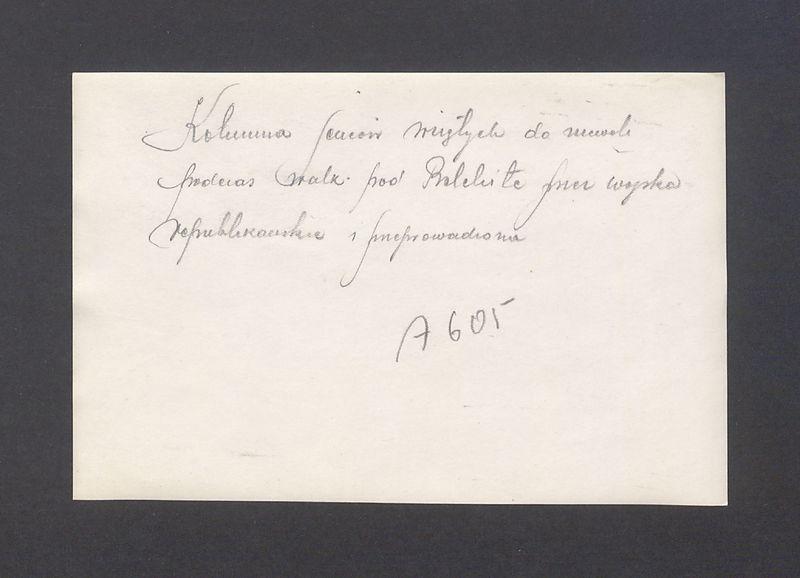 Kolumna jeńców wziętych do niewoli
podczas walk pod Belchite przez wojska
republikańskie i przeprowadzona
A 605